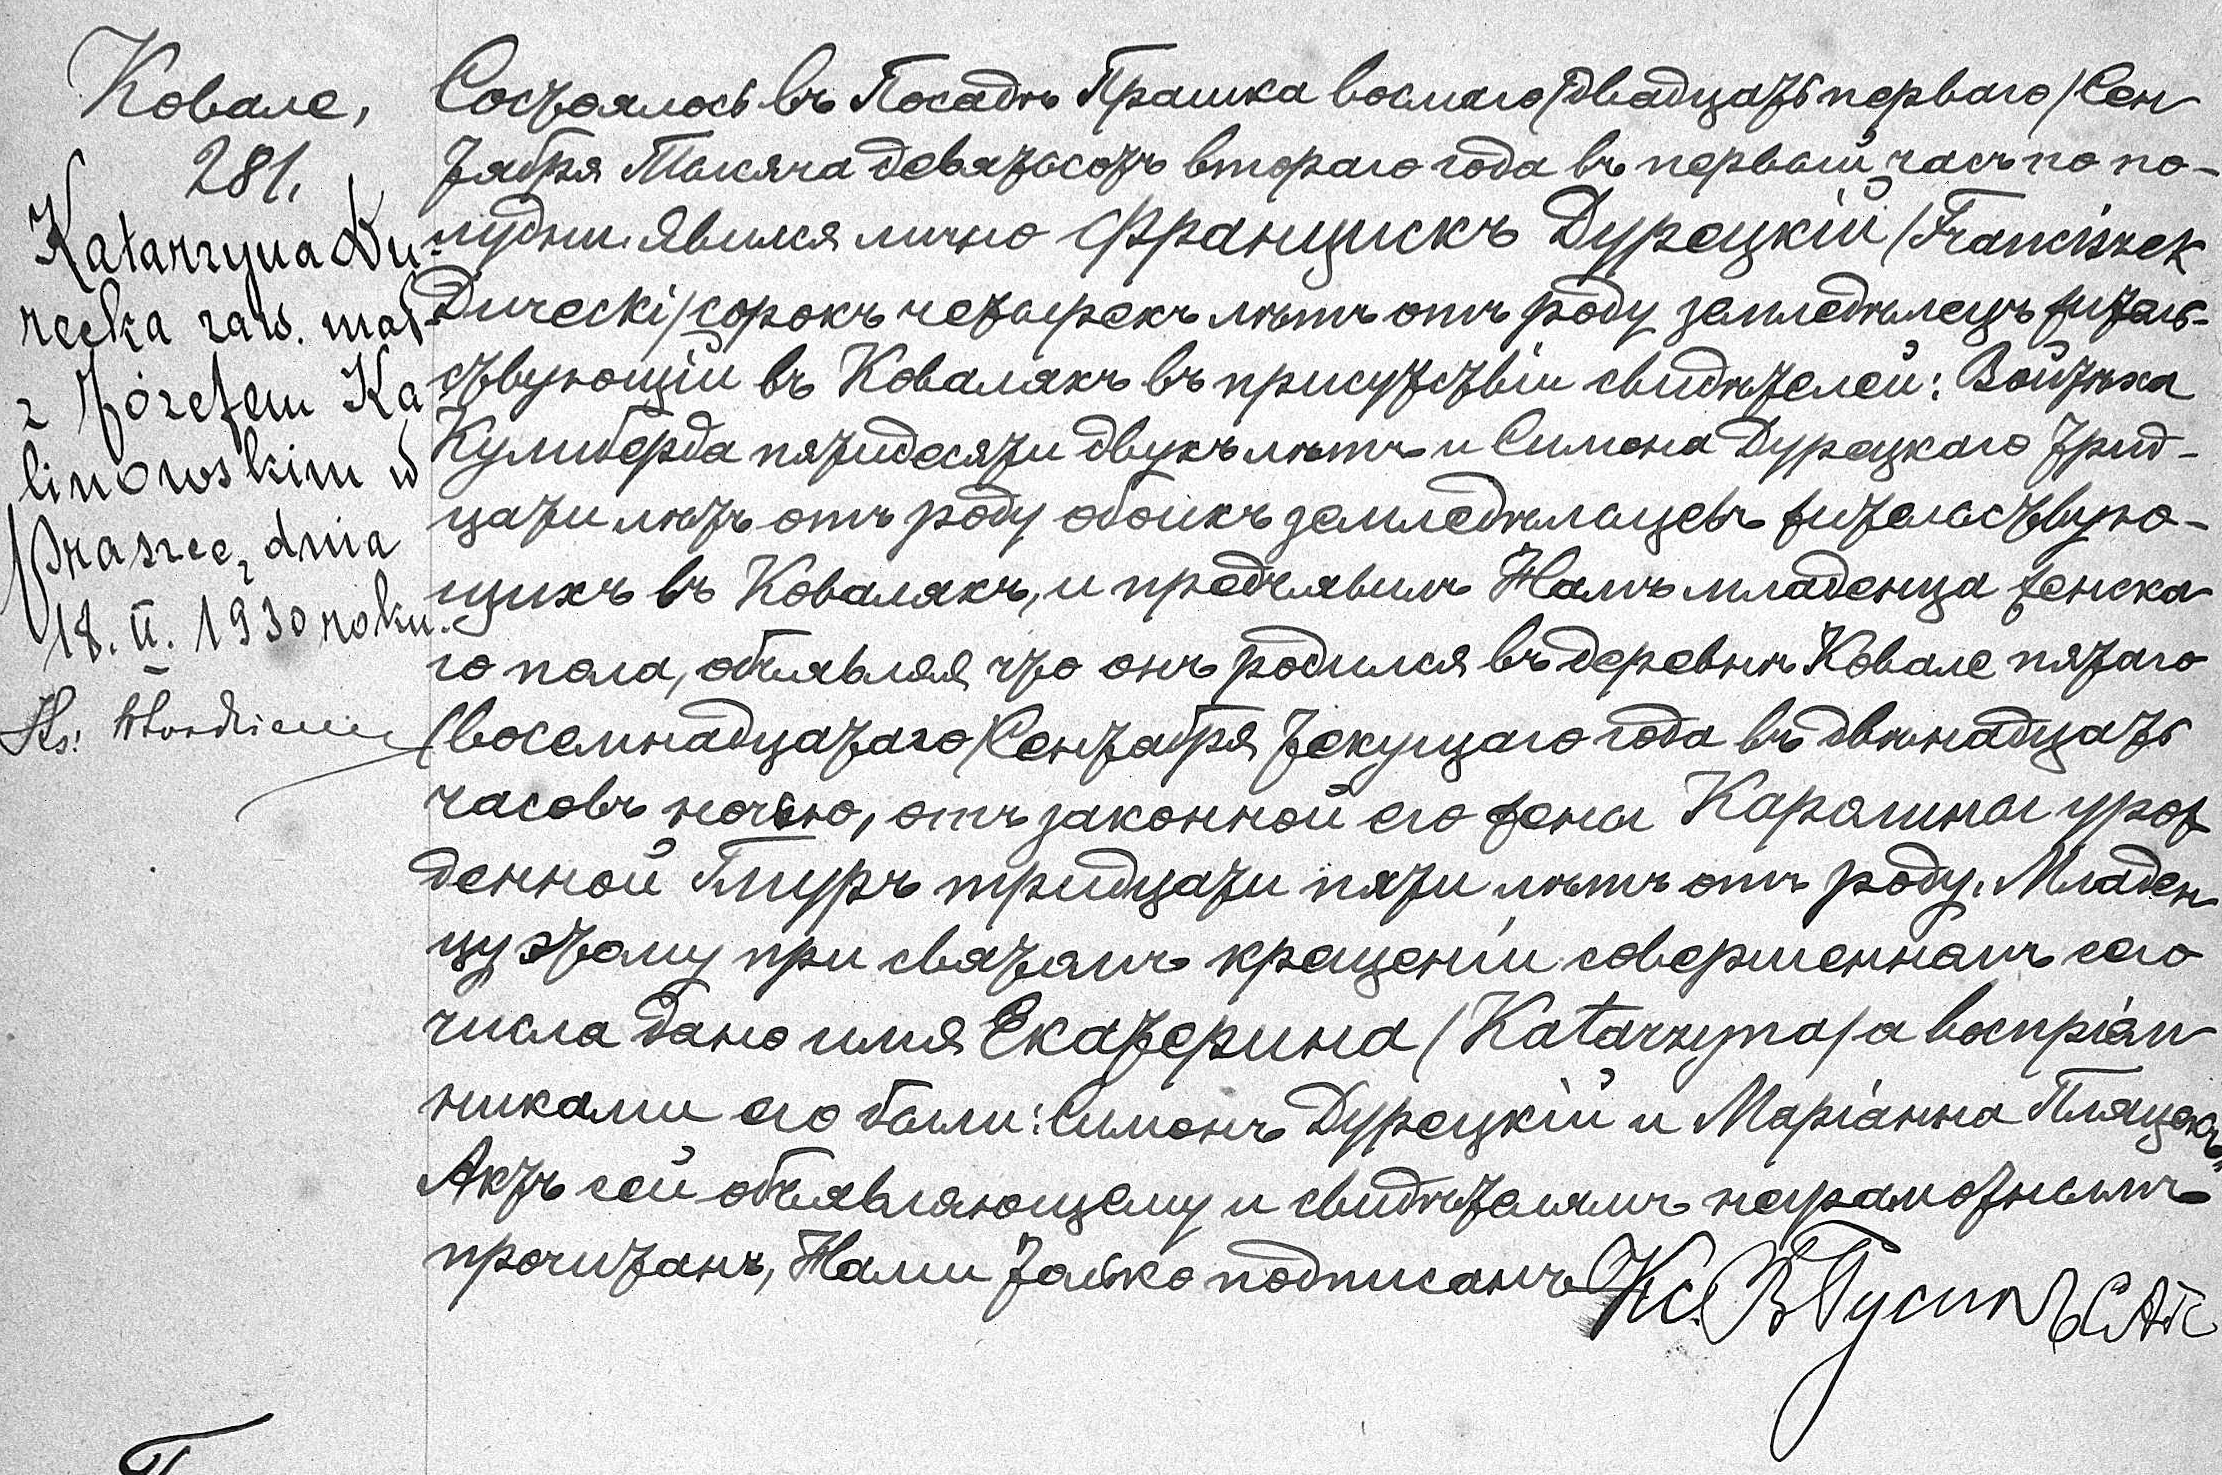 Ковале,
281.
Katarzyna Du-
recka zaw. mał.
z Józefem Ka
linowskim w
Praszce, dnia
18. II. 1930 roku.
Ks:
Состоялось въ Посадѣ Прашка восмаго /двадцать перваго/ Сен
тября Тысяча девятьсотъ втораго года въ первый часъ по по-
лудни. Явился лично Францискъ Дурецкій /Franciszek
Durecki/ сорокъ четырехъ лѣтъ отъ роду земледѣлецъ житель-
ствующій въ Коваляхъ въ присутствіи свидѣтелей: Войтѣха
Кулиберда пятидесяти двухъ лѣтъ и Симона Дурецкаго трид-
цати лѣтъ отъ роду обоихъ земледѣльцевъ жительствую-
щихъ въ Коваляхъ, и предъявилъ Намъ младенца женска
го пола, объявляя что онъ родился въ деревнѣ Ковале пятаго
/восемнадцатаго/ Сентября текущаго года въ двѣнадцать
часовъ ночью, отъ законной его жены Каролины урож
денной Гмуръ тридцати пяти лѣтъ отъ роду. Младен
цу этому при святомъ крещеніи совершенномъ сего
числа дано имя Екатерина /Katarzyna/ а воспріем
никами его были: Симонъ Дурецкій и Маріанна Пляцекъ
Актъ сей объявляющему и свидѣтелямъ неграмотнымъ
прочитанъ, Нами только подписанъ
Кс.